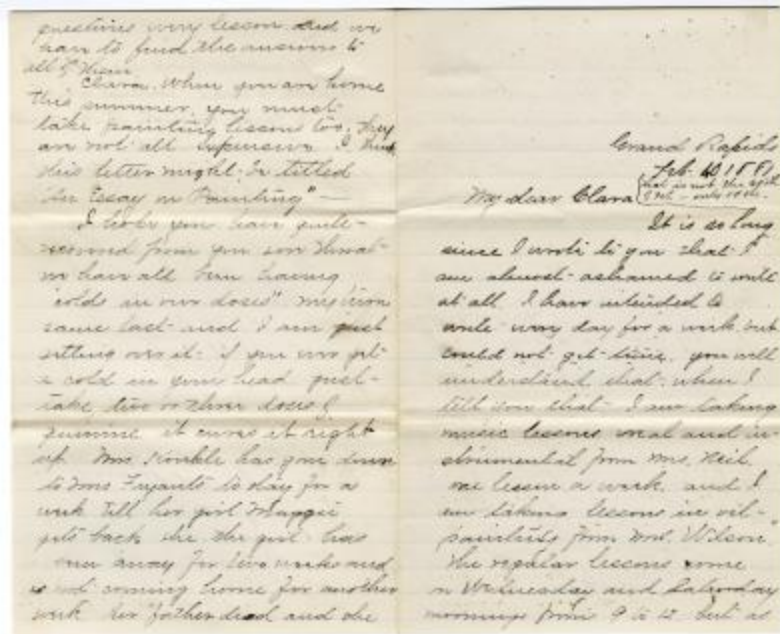 questions every lesson and we
have to find the answers to
all of them
Clara, when you are home
this summer, you must
take painting lessons too, they
are not all expensive I think
this letter might be titled
"An Essay on Painting" —
I hope you have quite
recovered from your sore throat
we have all been having
"colds in our doses" mine
came last and I am just
getting over it - if you ever get
a cold in your head just
take two or three doses of
quinine it cures it right
up. Mrs. has gone down
to Mrs to stay for a
week till her girl Maggie
gets back the girl has
been away for two weeks and
is not coming home for another
week her father dead and she
Grand Rapids
Feb. 10 1881
that is not the 40th
of Feb - only 10th.
My dear Clara
It is so long
since I wrote to you that I
am almost ashamed to write
at all I have intended to
write every day for a week but
could not get time. you will
understand that when I
tell you that I am taking
music lessons vocal and in-
strumental from Mrs. Neil.
one lesson a week. and I
am taking lessons in oil-
painting from Mrs. Wilson.
The regular lessons come
on Wednesday and Saturday
mornings from 9 to 12 but as